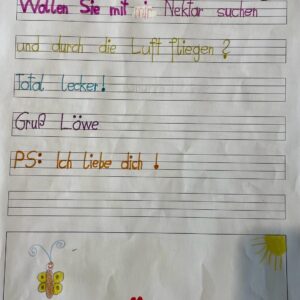 Wollen Sie mit mir Nektar suchen
und durch die Luft fliegen?
Total lecker!
Gruß Löwe
PS: Ich liebe dich!